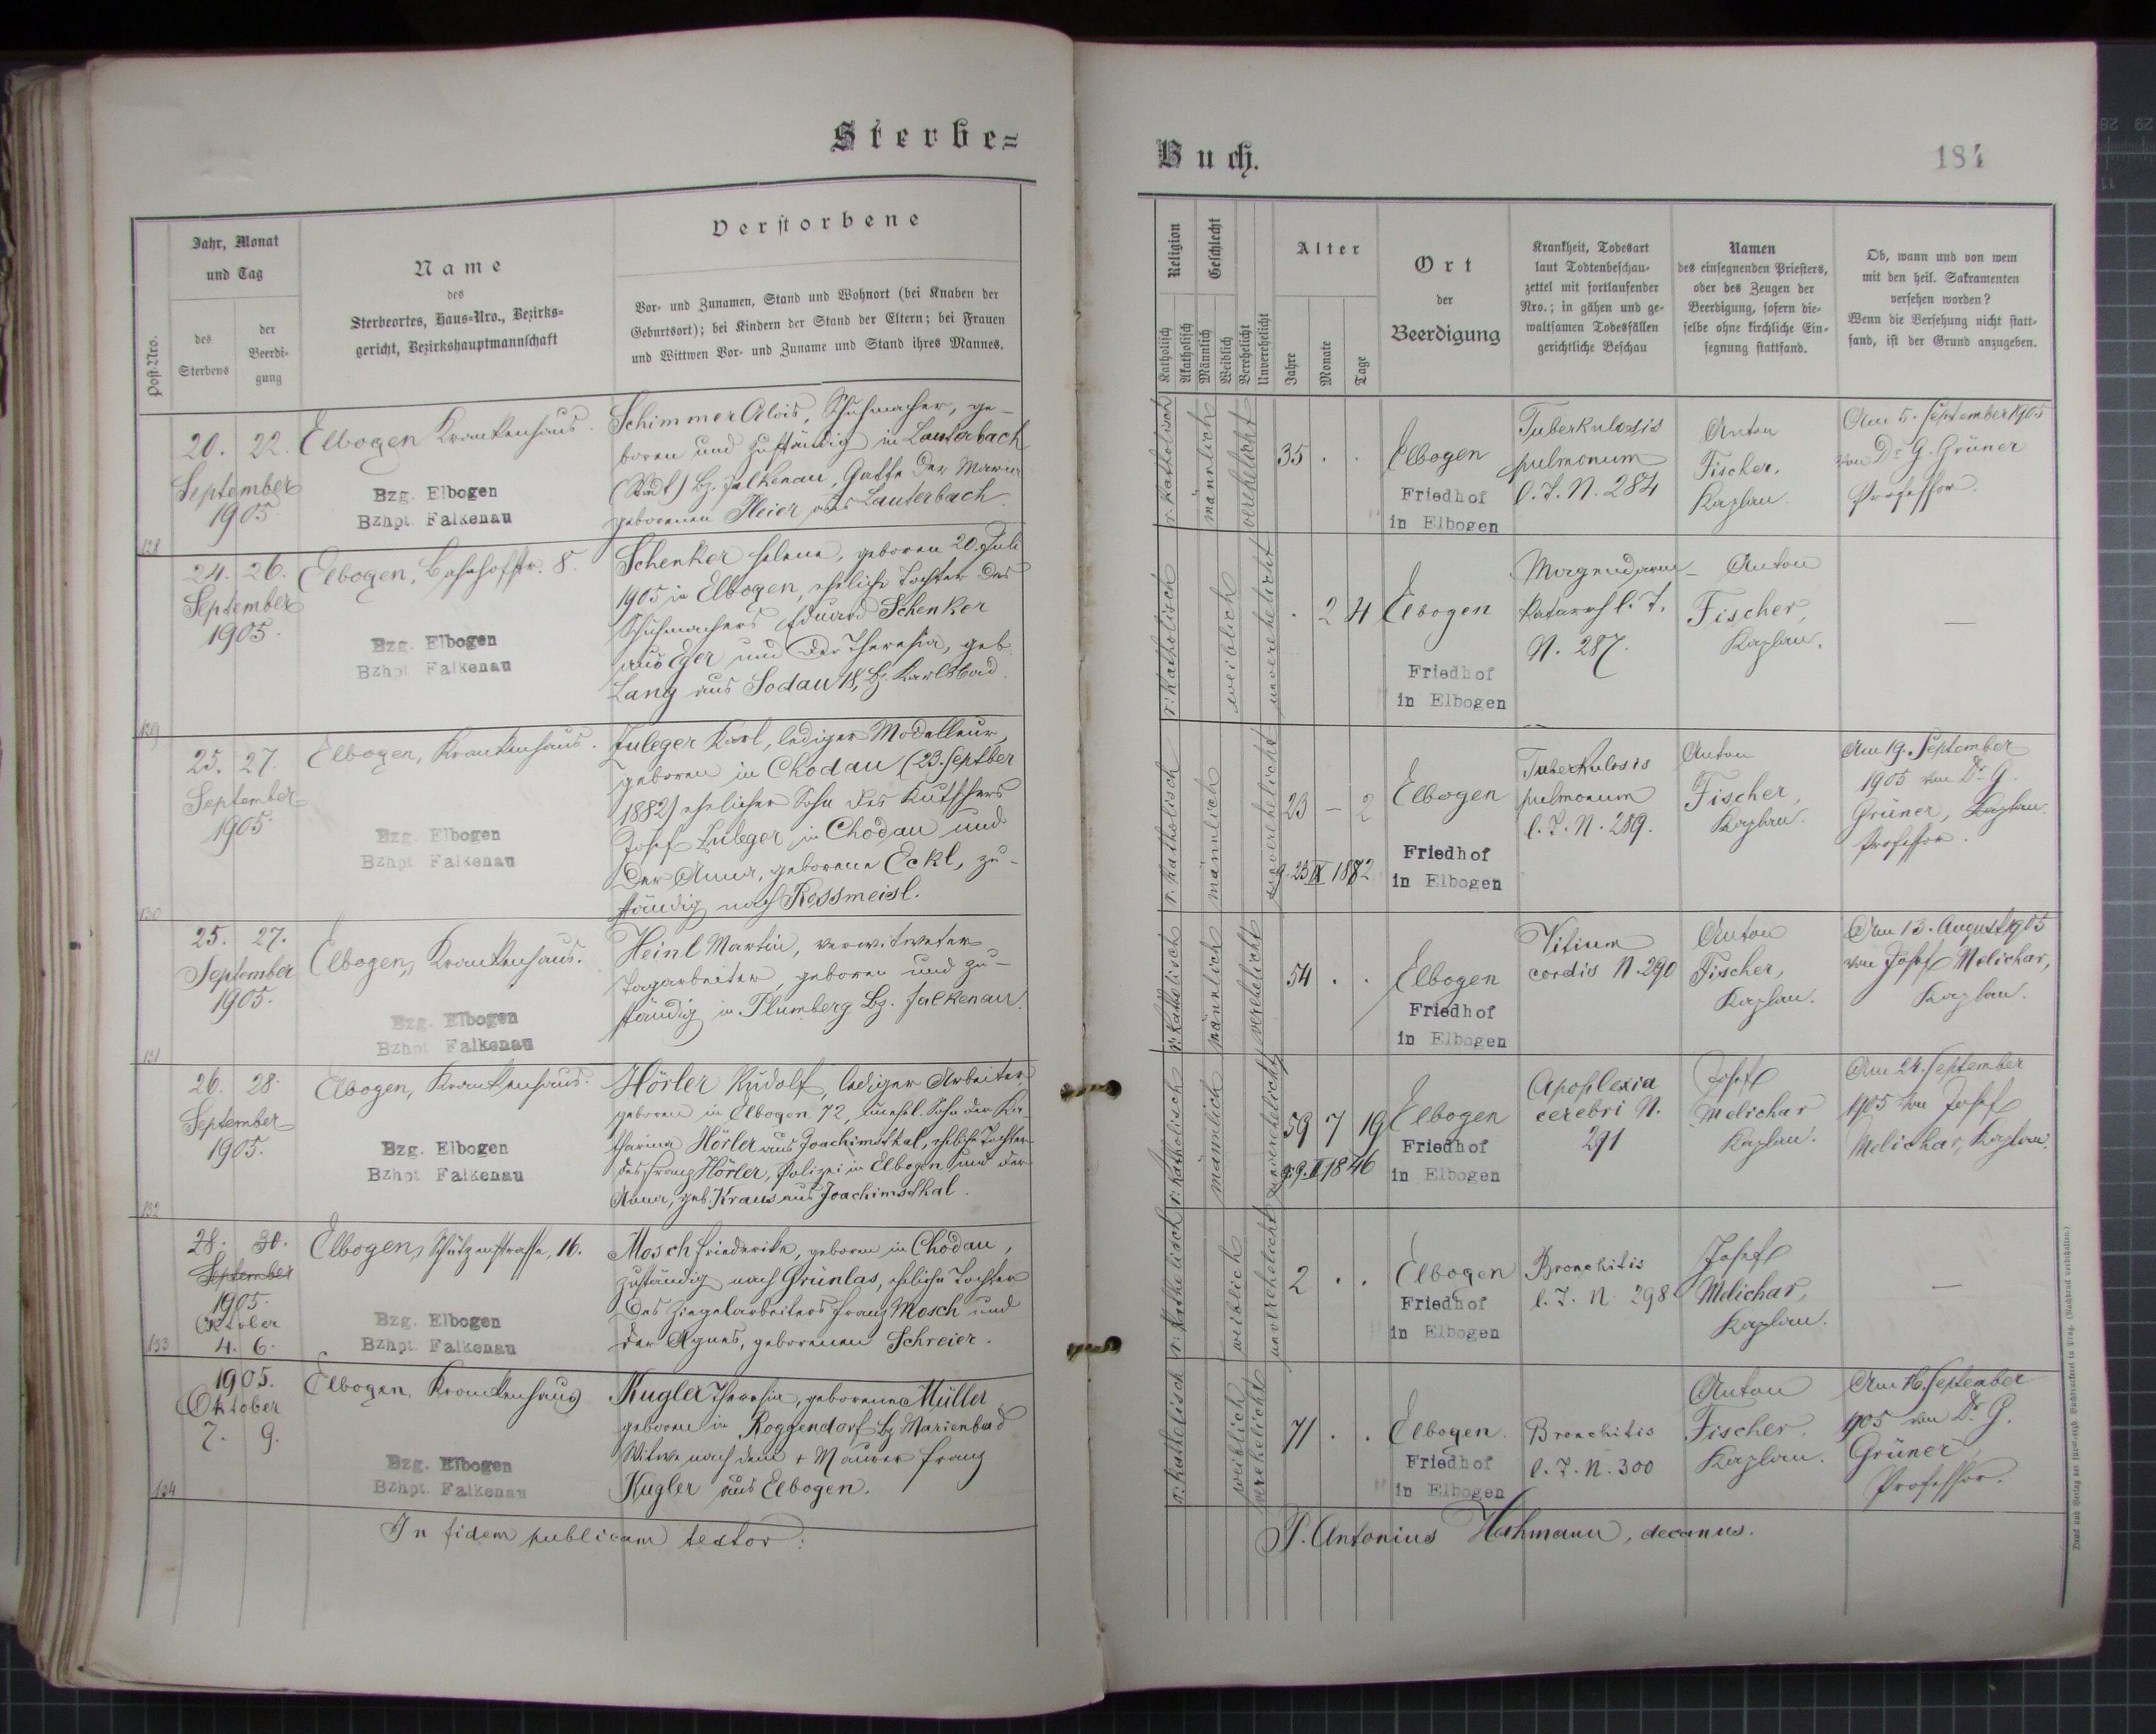 Sterbe=
Buch.
184
Post-Nro.
Jahr, Monat
und Tag
des
Sterbens
der
Beerdi-
gung
Name
des
Sterbeortes, Haus-Nro., Bezirks-
gericht, Bezirkshauptmannschaft
Verstorbene
Vor- und Zunamen, Stand und Wohnort (bei Knaben der
Geburtsort); bei Kindern der Stand der Eltern; bei Frauen
und Wittwen Vor- und Zuname und Stand ihres Mannes.
Religion
Katholisch
Akatholisch
Geschlecht
Männlich
Weiblich
Verehelicht
Unverehelicht
Alter
Jahre
Monate
Tage
Ort
der
Beerdigung
Krankheit, Todesart
laut Todtenbeschau-
zettel mit fortlaufender
Nro.; in gähen und ge-
waltsamen Todesfällen
gerichtliche Beschau
Namen
des einsegnenden Priesters,
oder des Zeugen der
Beerdigung, sofern die-
selbe ohne kirchliche Ein-
segnung stattfand.
Ob, wann und von wem
mit den heil. Sakramenten
versehen worden?
Wenn die Versehung nicht statt-
fand, ist der Grund anzugeben.
128
20. 22.
September
1905.
Elbogen Krankenhaus.
Bzg. Elbogen
Bzhpt. Falkenau
Schimmer Alois, Schuhmacher, ge-
boren und zuständig in Lauterbach
(Stadt) Bz. Falkenau, Gatte der Maria
geborenen Pleier aus Lauterbach.
r. katholisch
männlich
verehelicht
35 . .
Elbogen
Friedhof
in Elbogen
Tuberkulosis
pulmonum
l. T. N. 284
Anton
Fischer,
Kaplan.
Am 5. September 1905
von Dr. G. Grüner
Professor.
129
24. 26.
September
1905.
Elbogen, Bahnhofstr. 8.
Bzg. Elbogen
Bzhpt. Falkenau
Schenker Helene, geboren 20. Juli
1905 in Elbogen, eheliche Tochter des
Schuhmachers Eduard Schenker
aus Eger und der Theresia, geb.
Lang aus Sodau 18, Bz. Karlsbad.
r. katholisch
weiblich
unverehelicht
. 2 4
Elbogen
Friedhof
in Elbogen
Magendarm-
katarrh l. T.
N. 287.
Anton
Fischer,
Kaplan.
—
130
25. 27.
September
1905.
Elbogen, Krankenhaus.
Bzg. Elbogen
Bzhpt. Falkenau
Zuleger Karl, lediger Modelleur,
geboren in Chodau (23. Septber
1882) ehelicher Sohn des Kutschers
Josef Zuleger in Chodau und
der Anna, geborene Eckl, zu-
ständig nach Rossmeisl.
r. katholisch
männlich
unverehelicht
23 — 2
g. 23 IX 1882
Elbogen
Friedhof
in Elbogen
Tuberkulosis
pulmonum
l. T. N. 289.
Anton
Fischer,
Kaplan.
Am 19. September
1905 von Dr. G.
Grüner, Kaplan
Professor.
131
25. 27.
September
1905.
Elbogen, Krankenhaus.
Bzg. Elbogen
Bzhpt. Falkenau
Heinl Martin, verwitweter
Tagarbeiter, geboren und zu-
ständig in Plumberg Bz. Falkenau.
r. katholisch
männlich
verehelicht
54 . .
Elbogen
Friedhof
in Elbogen
Vitium
cordis N. 290
Anton
Fischer,
Kaplan.
Am 13. August 1905
von Josef Melichar,
Kaplan.
132
26. 28.
September
1905.
Elbogen, Krankenhaus.
Bzg. Elbogen
Bzhpt. Falkenau
Hörler Rudolf, lediger Arbeiter,
geboren in Elbogen 72, unehel. Sohn der Ka-
tharina Hörler aus Joachimsthal, eheliche Tochter
des Franz Hörler, Polizei in Elbogen und der
Anna, geb. Kraus aus Joachimsthal.
r. katholisch
männlich
unverehelicht
59 7 19
g. 9. II 1846
Elbogen
Friedhof
in Elbogen
Apoplexia
cerebri N.
291
Josef
Melichar
Kaplan.
Am 24. September
1905 von Josef
Melichar, Kaplan.
133
28. 30.
September
1905.
Oktober
4. 6.
Elbogen, Schützenstrasse, 16.
Bzg. Elbogen
Bzhpt. Falkenau
Mosch Friederika, geboren in Chodau,
zuständig nach Grünlas, eheliche Tochter
des Ziegelarbeiters Franz Mosch und
der Agnes, geborenen Schreier.
r. katholisch
weiblich
unverehelicht
2 . .
Elbogen
Friedhof
in Elbogen
Bronchitis
l. T. N. 298
Josef
Melichar,
Kaplan.
—
134
1905.
Oktober
7. 9.
Elbogen, Krankenhaus
Bzg. Elbogen
Bzhpt. Falkenau
Kugler Theresia, geborene Müller
geboren in Roggendorf Bz. Marienbad
Witwe nach dem + Maurer Franz
Kugler aus Elbogen.
r. katholisch
weiblich
verehelicht
71 . .
Elbogen.
Friedhof
in Elbogen
Bronchitis
l. T. N. 300
Anton
Fischer,
Kaplan.
Am 16. September
1905 von Dr. G.
Grüner,
Professor.
In fidem publicam testor:
P. Antonius Hahmann, decanus.